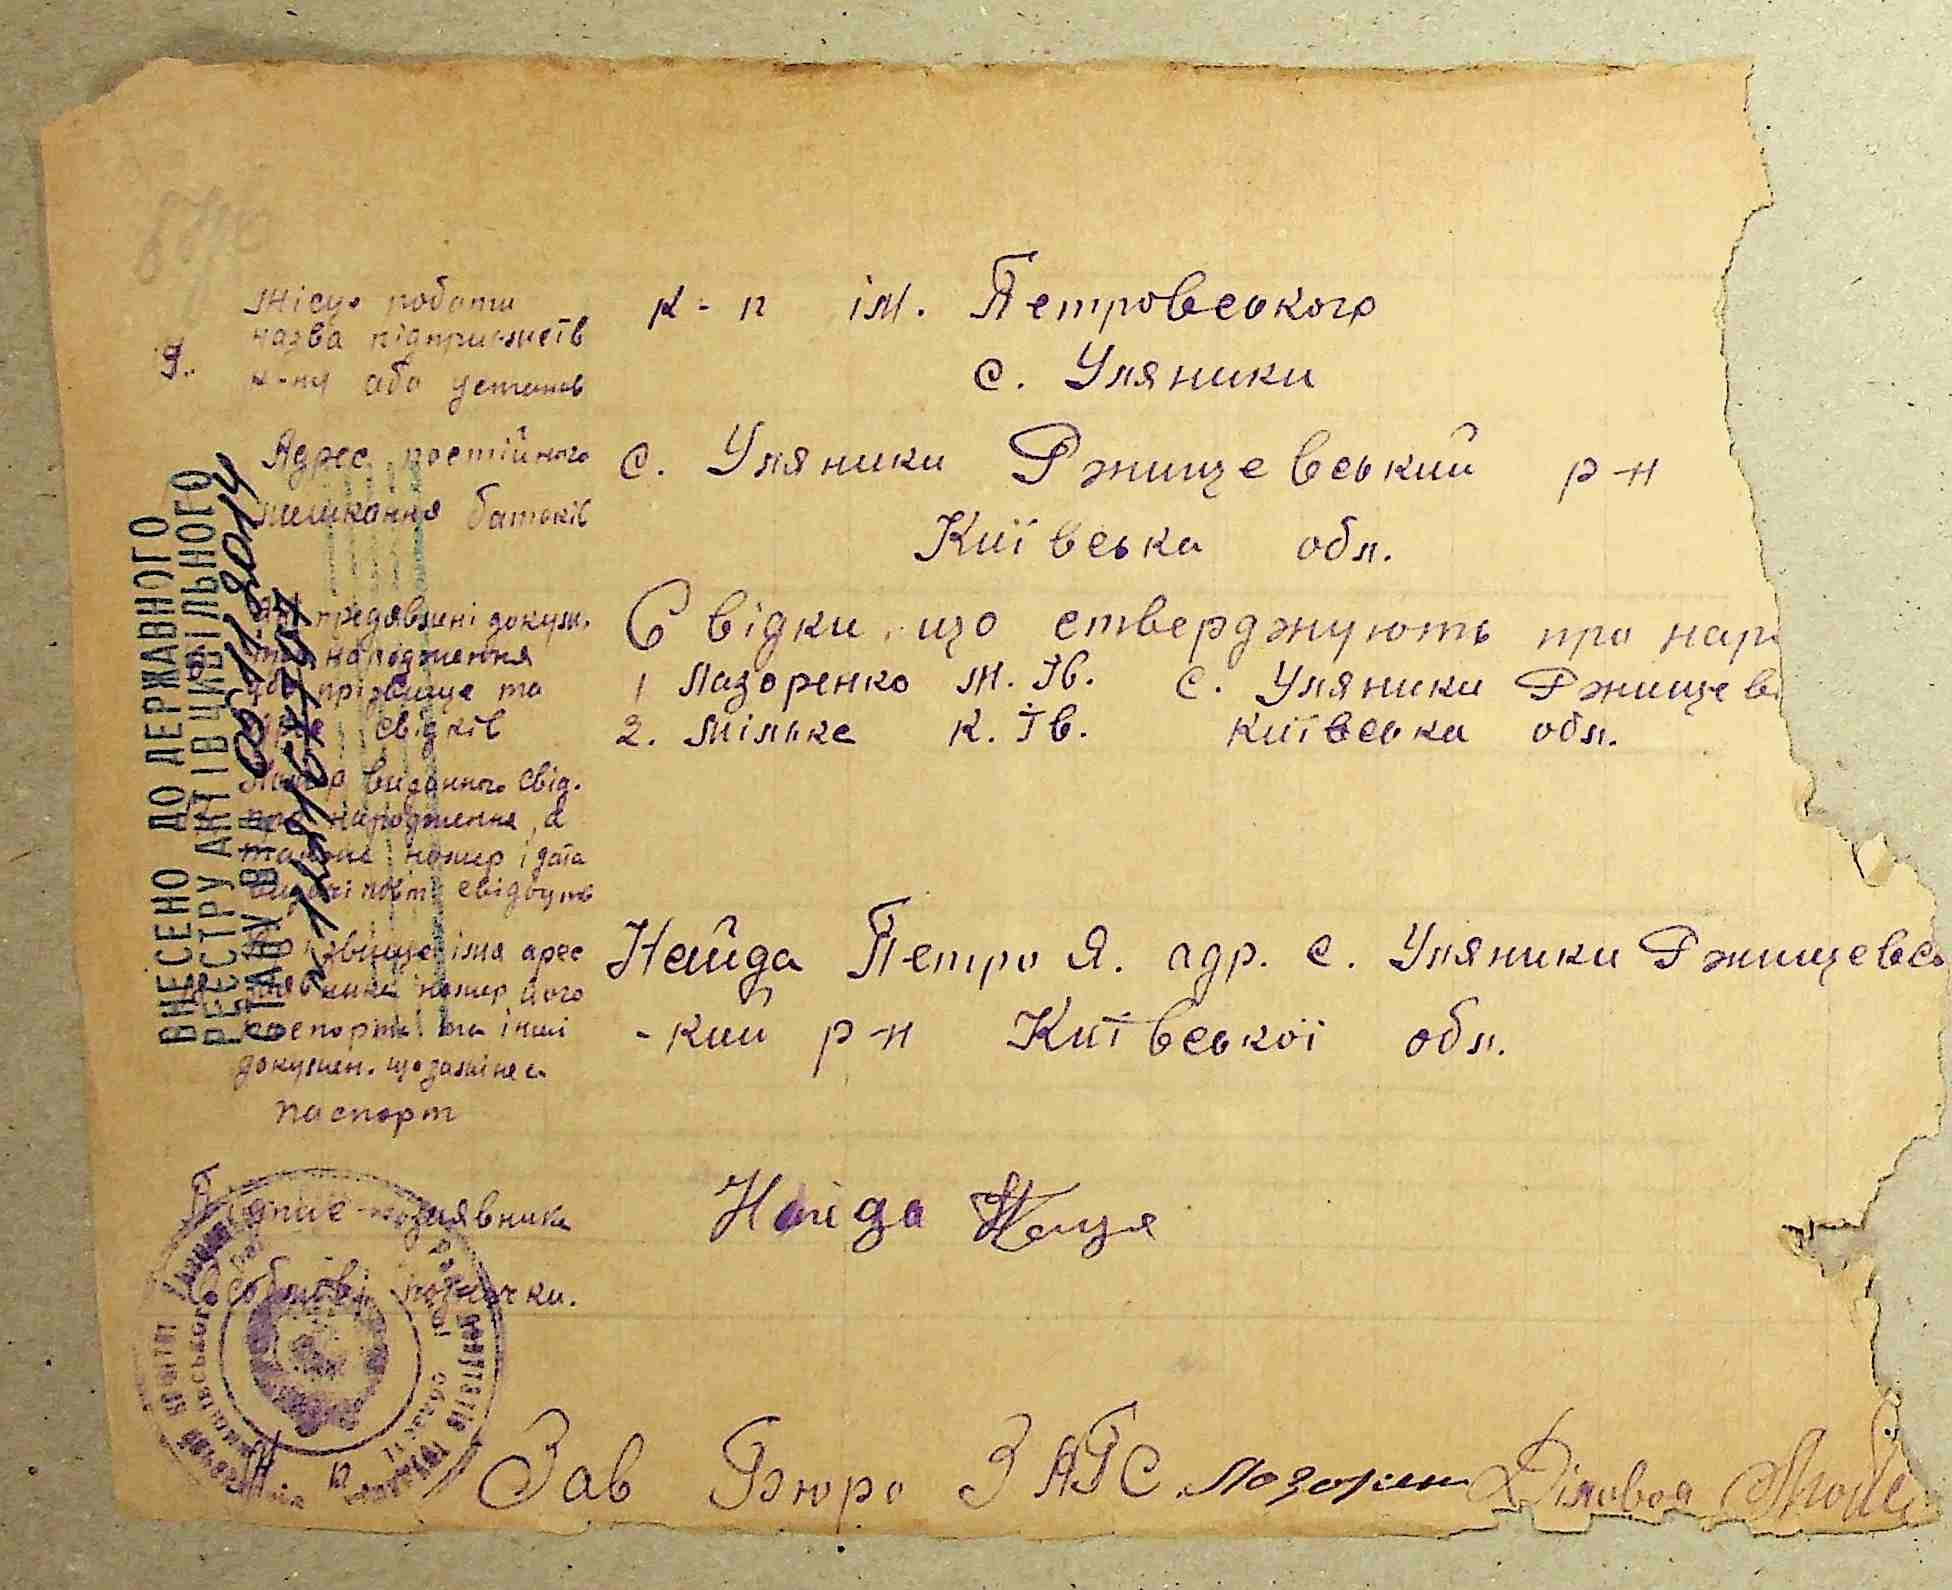 Місце роботи
назва підприємств
9. к-пу або установ
к-п ім. Петровського
с. Уляники
Адрес постійного
мешкання батьків
с. Уляники Ржищевський р-н
Київська обл.
предявлені докум.
народження
або прізвище та
свідків
Свідки, що стверджують про нар
1 Лазоренко М. Ів. с. Уляники Ржищев
2. Мільке К. Ів. Київська обл.
Номер виданного свід.
про народження, а
також номер і дата
видачі повт. свідоцтв
імя адрес
номер його
паспорта та інші
докумен. що заміне
паспорт
Найда Петро Я. адр. с. Уляники Ржищевсь
-кий р-н Київської обл.
Підпис заявника
Найда
Особливі позначки.
Зав Бюро ЗАГС Діловод
ВНЕСЕНО ДО ДЕРЖАВНОГО
РЕЄСТРУ АКТІВ ЦИВІЛЬНОГО
СТАНУ